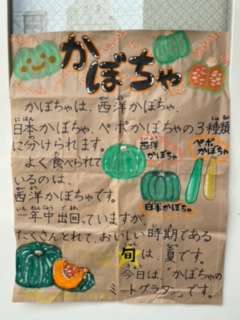 かぼちゃ
かぼちゃは、西洋かぼちゃ、
日本かぼちゃ、ペポかぼちゃの3種類
に分けられます。
よく食べられて
いるのは、
西洋かぼちゃです。
西洋
かぼちゃ
ペポ
かぼちゃ
日本かぼちゃ
一年中出回っていますが、
たくさんとれて、おいしい時期である
旬は、夏です。
今日は、「かぼちゃの
ミートグラタン」です。